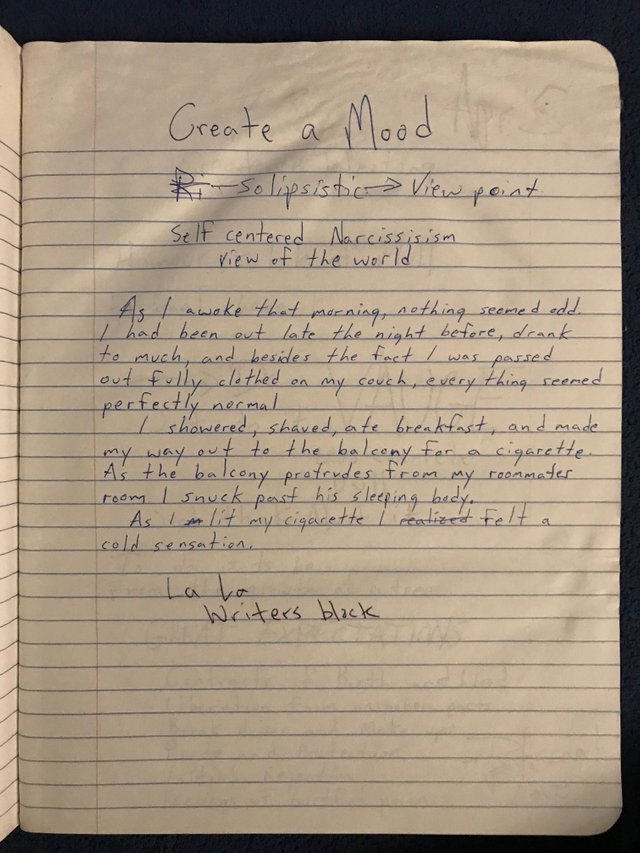 Create a Mood
— Solipsistic → View point
Self centered Narcissisism
view of the world
As I awoke that morning, nothing seemed odd.
I had been out late the night before, drank
to much, and besides the fact I was passed
out fully clothed on my couch, every thing seemed
perfectly normal
I showered, shaved, ate breakfast, and made
my way out to the balcony for a cigarette.
As the balcony protrudes from my roommates
room I snuck past his sleeping body.
As I lit my cigarette I realized felt a
cold sensation.
La La
Writers block